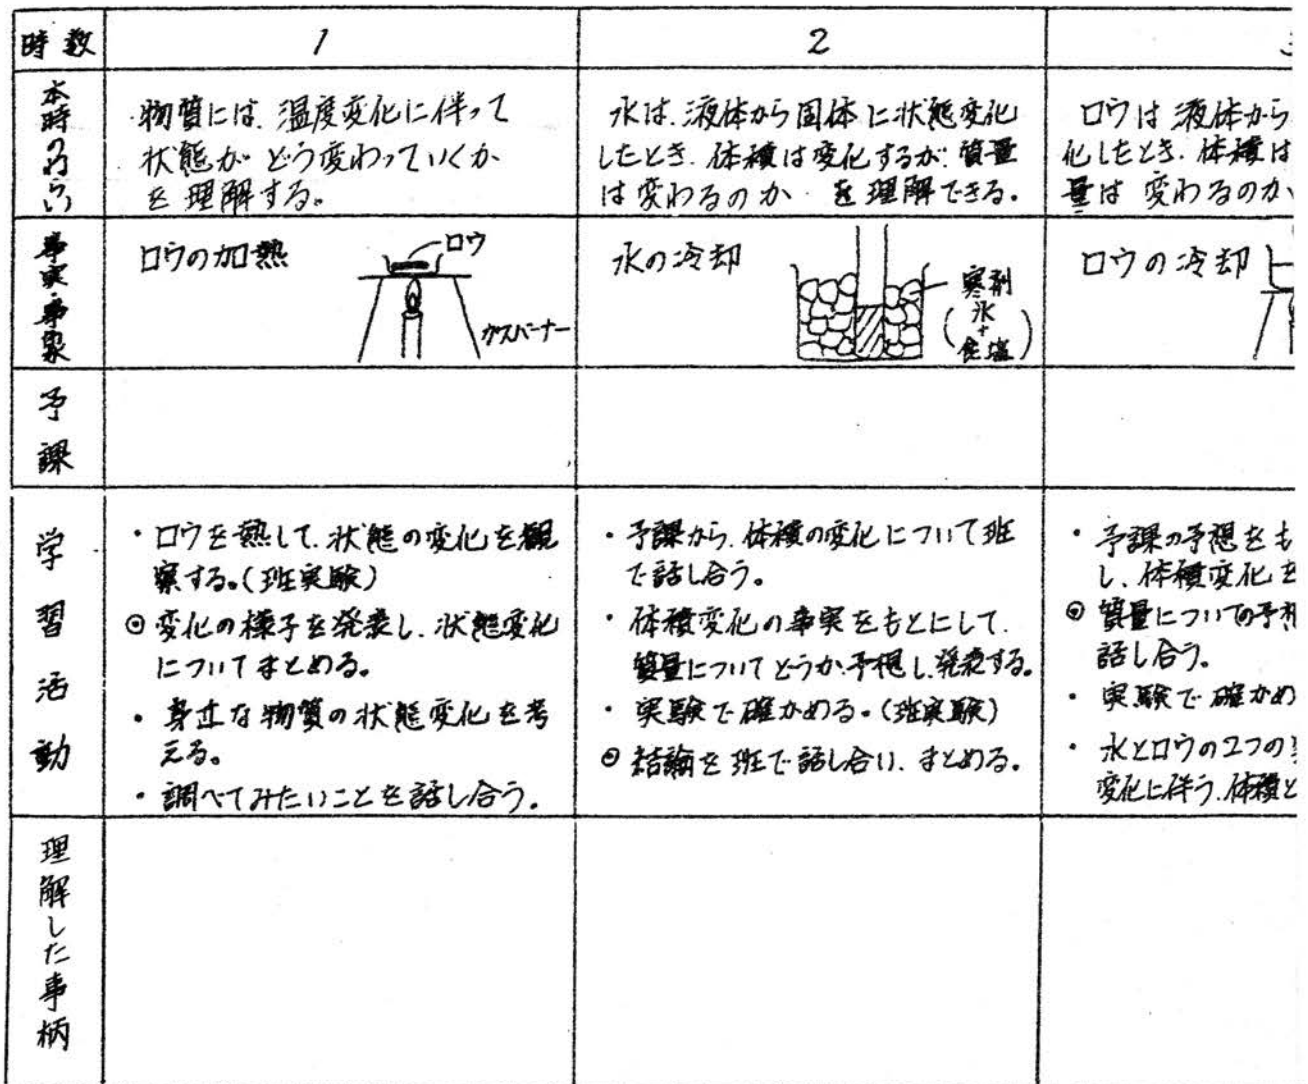 時数
1
2
本時のねらい
物質には、温度変化に伴って
状態が どう変わっていくか
を 理解する。
水は、液体から固体に状態変化
したとき、体積は変化するが、質量
は変わるのか を理解できる。
ロウは 液体から
化したとき、体積は
量は 変わるのか
事実・事象
ロウの加熱
ロウ
ガスバーナー
水の冷却
寒剤
(氷+食塩)
ロウの冷却
予課
学習活動
・ロウを熱して、状態の変化を観
察する。(班実験)
◎変化の様子を発表し、状態変化
についてまとめる。
・身近な物質の状態変化を考
える。
・調べてみたいことを話し合う。
・予課から、体積の変化について班
で話し合う。
・体積変化の事実をもとにして、
質量についてどうか予想し、発表する。
・実験で確かめる。(班実験)
◎結論を班で話し合い、まとめる。
・予課の予想をも
し、体積変化を
◎質量についての予想
話し合う。
・実験で確かめ
・水とロウの2つの
変化に伴う、体積と
理解した事柄